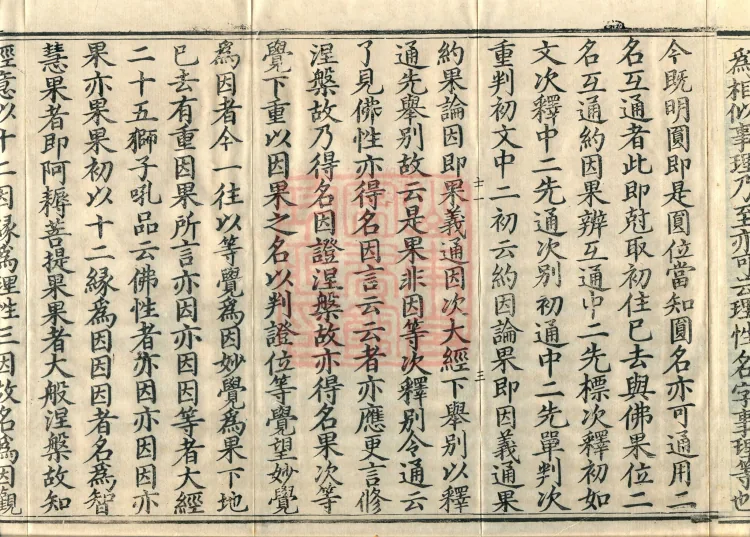 為相似事理乃至亦可云理性名字事理等也
今既明圓即是圓位當知圓名亦可通用二
名互通者此即尅取初住已去與佛果位二
名互通約因果辨互通中二先標次釋初如
文次釋中二先通次別初通中二先單判次
重判初文中二初云約因論果即因義通果
約果論因即果義通因次大經下舉別以釋
通先舉別故云是果非因等次釋別令通云
了見佛性亦得名因言云云者亦應更言修
涅槃故乃得名因證涅槃故亦得名果次等
覺下重以因果之名以判證位等覺望妙覺
為因者今一往以等覺為因妙覺為果下地
已去有重因果所言亦因亦因因等者大經
二十五獅子吼品云佛性者亦因亦因因亦
果亦果果初以十二緣為因因因者名為智
慧果者即阿耨菩提果果者大般涅槃故知
經意以十二因緣為理性三因故名為因觀
十一
三